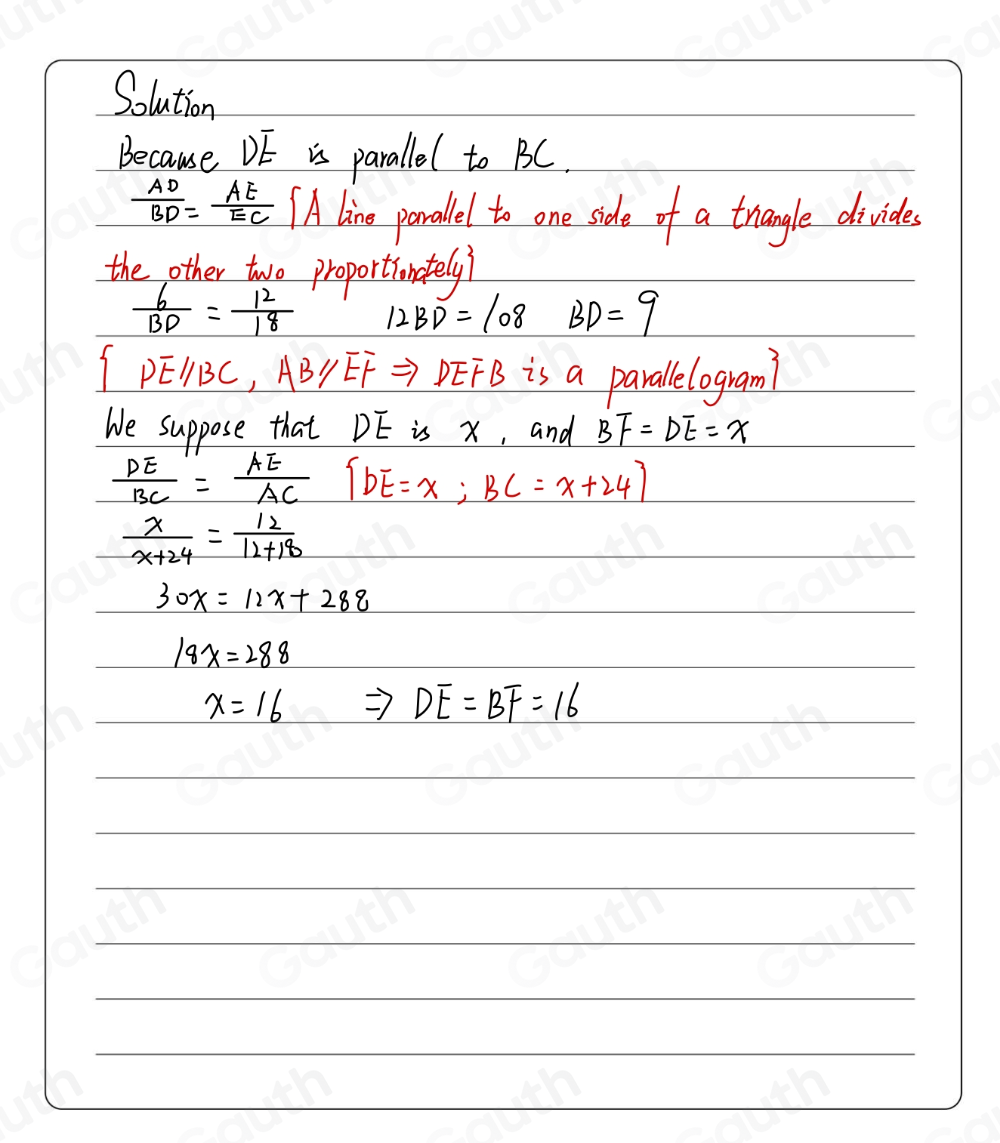 Solution
Because DE is parallel to BC.
AD/BD = AE/EC {A line parallel to one side of a triangle divides
the other two proportionately}
6/BD = 12/18 12BD = 108 BD = 9
{ DE//BC, AB//EF ⇒ DEFB is a parallelogram}
We suppose that DE is x, and BF = DE = x
DE/BC = AE/AC {DE = x ; BC = x+24}
x/x+24 = 12/12+18
30x = 12x + 288
18x = 288
x = 16 ⇒ DE = BF = 16